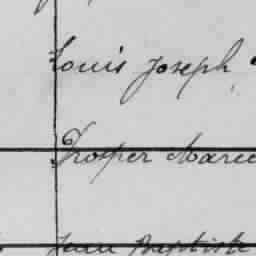 Louis Joseph
Prosper Marie
Jean Baptiste